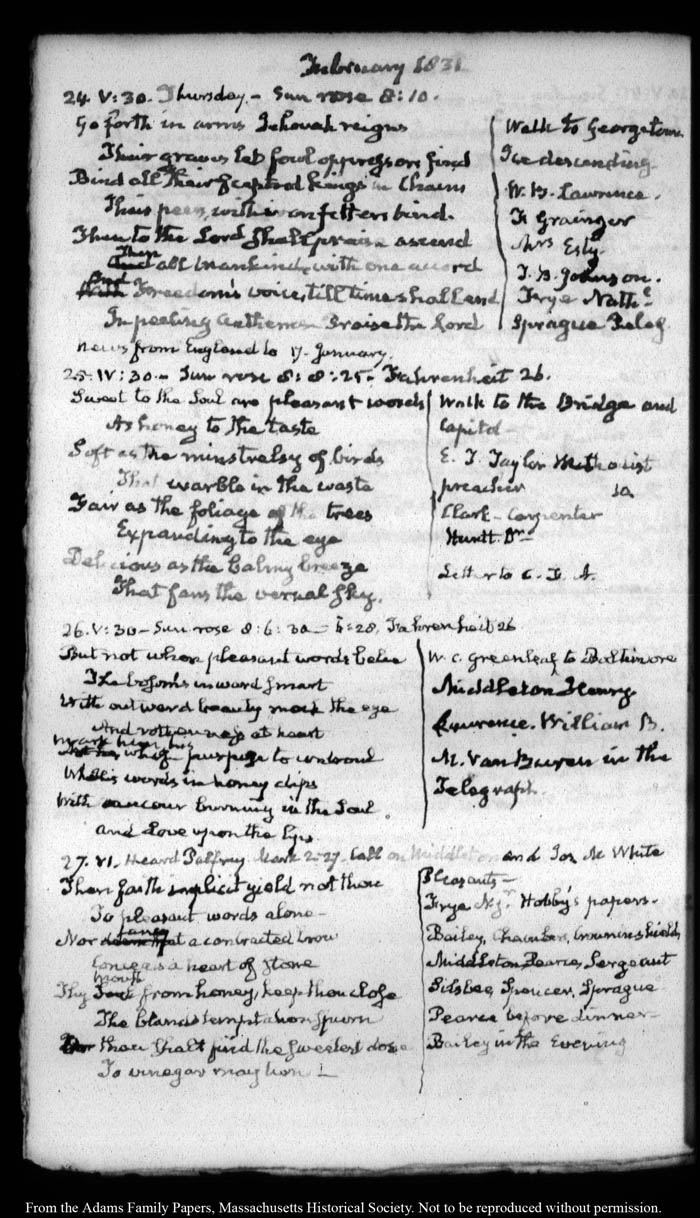 February 1831
24. V:30. Thursday - Sun rose 8:10.
Go forth in arms Jehovah reigns
Their graves let foul oppressors find
Bind all their sceptred kings in chains
Their peers with iron fetters bind.
Then to the Lord shall praise ascend
Then
all mankind, with one accord
And
With Freedom's voice, till time shall end
In pealing anthems Praise the Lord
Walk to Georgetown
Ice descending
W. B. Lawrence.
F. Grainger
Mrs Esty.
J. B. Johnson.
Frye Nathl
Sprague Peleg
news from England to 17. January.
25. IV:30 - Sun rose 8:8:25. Fahrenheit 26.
Sweet to the Soul are pleasant words
As honey to the taste
Soft as the minstrelsy of birds
That warble in the waste
Fair as the foliage of the trees
Expanding to the eye
Delicious as the balmy breeze
That fans the vernal sky.
Walk to the Bridge and
Capitol
E. T. Taylor Methodist
preacher
Clark - Carpenter
Huntt. Dr
Letter to C. F. A.
26. V:30 - Sun rose 8:6:30 - Fahrenheit 26
But not when pleasant words belie
The bosom's inward smart
With outward beauty mock the eye
And rottenness at heart
whose purpose to
words in honey dips
With rancour burning in the Soul
and Love upon the lips.
W. C. Greenleaf to Baltimore
Middleton Henry
Lawrence. William B.
M. Van Buren in the
Telegraph.
27. VI. Heard Palfrey. Mark 2-27. Call on Middleton and Jos. M White
Then faith implicit yield not thou
To pleasant words alone -
fancy
Nor that a contracted brow
Conceals a heart of stone
mouth
Thy from honey, keep thou close
The bland temptation spurn
thou shalt find the sweetest dose
To vinegar may turn -
Pleasants -
Frye Hobby's papers.
Bailey, Chambers, Crowninshield,
Middleton Pearce, Sergeant
Silsbee, Spencer, Sprague
Pearce before dinner -
Bailey in the Evening
From the Adams Family Papers, Massachusetts Historical Society. Not to be reproduced without permission.